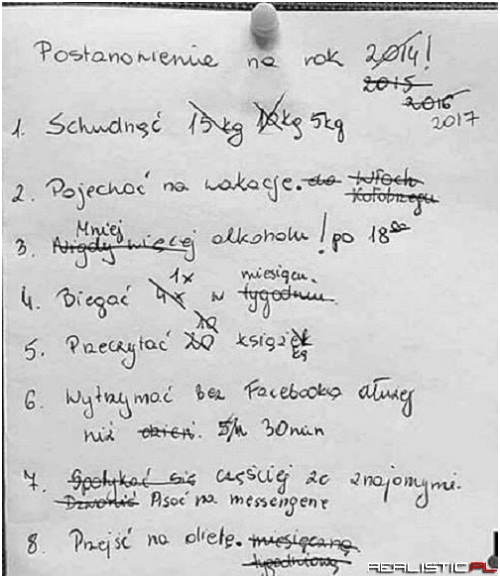 Postanowienie na rok 2014!
2015
2016
2017
1. Schudnąć 15kg 10kg 5kg
2. Pojechać na wakacje. do Włoch
Kołobrzegu
Mniej
3. Nigdy więcej alkoholu! po 18⁰⁰
1x miesiącu.
4. Biegać 4x w tygodniu.
10
5. Przeczytać 20 książek
kę
6. Wytrzymać bez Facebooka dłużej
niż dzień. 5h 30min
7. Spotykać się częściej ze znajomymi.
Dzwonić Pisać na messengerze
8. Przejść na dietę. miesięczną
tygodniową
REALISTIC.PL